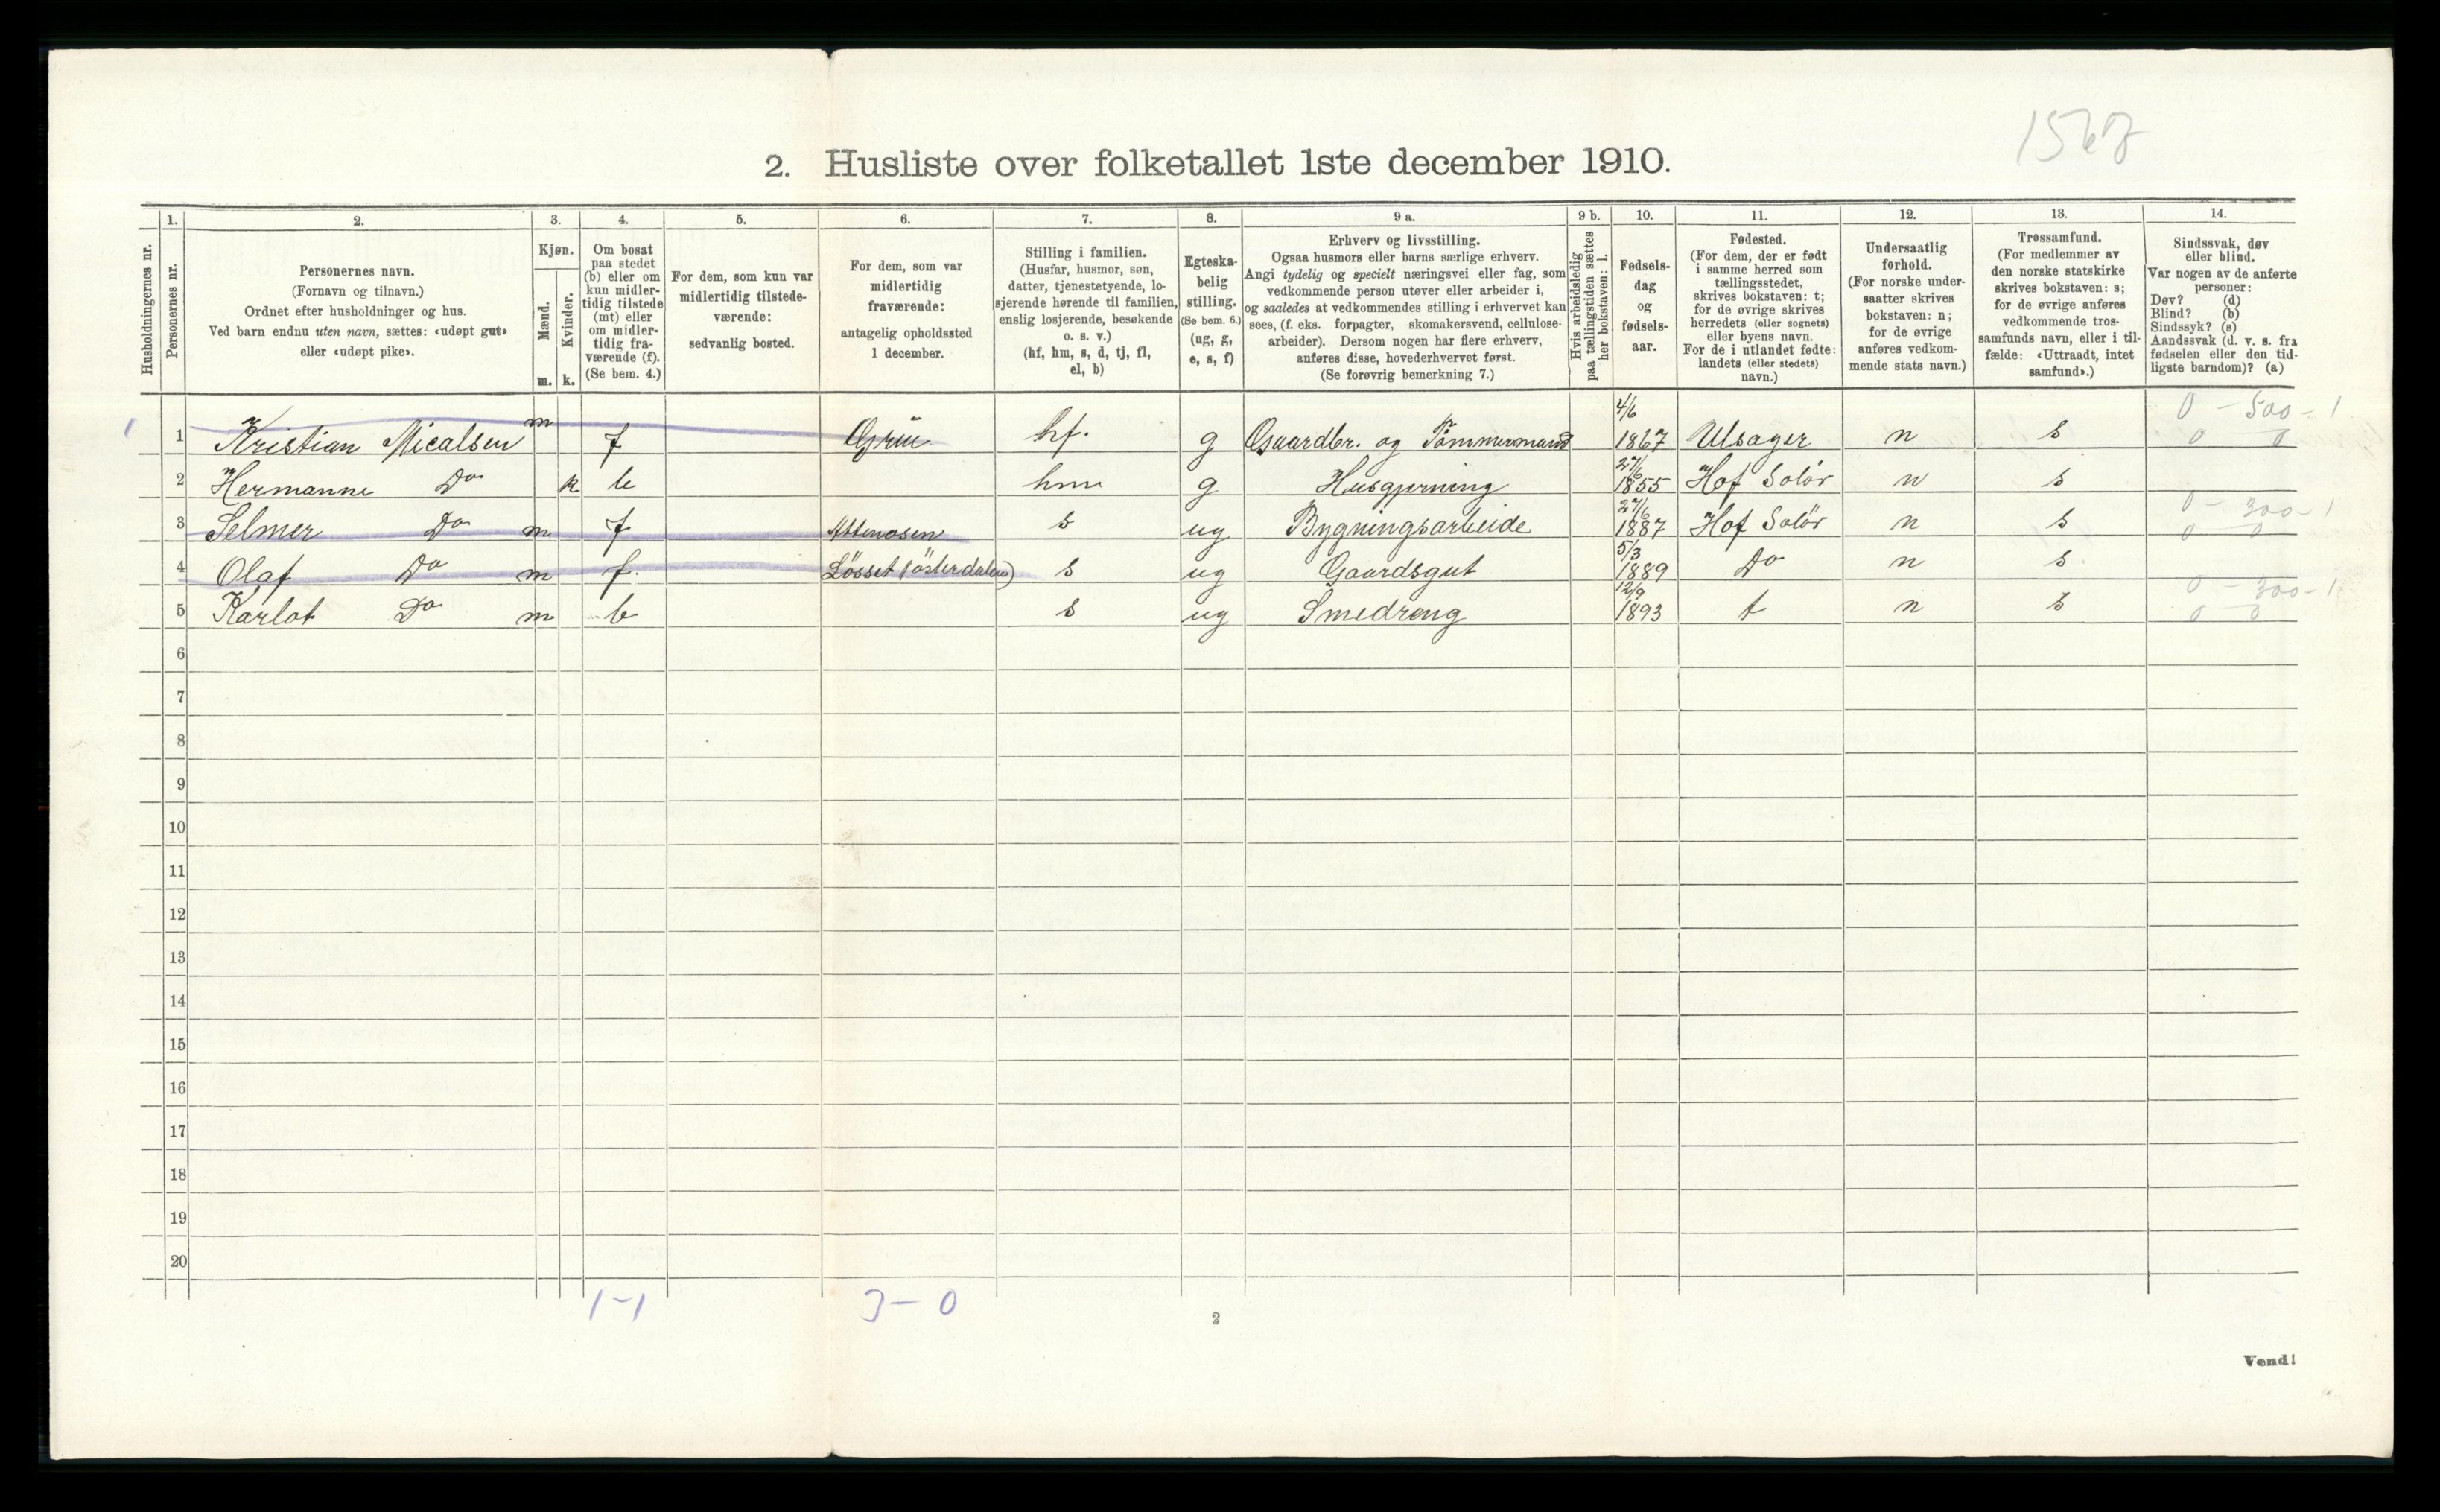 1567
2. Husliste over folketallet 1ste december 1910.
Husholdningernes nr.
1. Personernes nr.
2. Personernes navn.
(Fornavn og tilnavn.)
Ordnet efter husholdninger og hus.
Ved barn endnu uten navn, sættes: «udøpt gut»
eller «udøpt pike».
3. Kjøn.
Mænd. m.
Kvinder. k.
4. Om bosat
paa stedet
(b) eller om
kun midler-
tidig tilstede
(mt) eller
om midler-
tidig fra-
værende (f).
(Se bem. 4.)
5. For dem, som kun var
midlertidig tilstede-
værende:
sedvanlig bosted.
6. For dem, som var
midlertidig
fraværende:
antagelig opholdssted
1 december.
7. Stilling i familien.
(Husfar, husmor, søn,
datter, tjenestetyende, lo-
sjerende hørende til familien,
enslig losjerende, besøkende
o. s. v.)
(hf, hm, s, d, tj, fl,
el, b)
8. Egteska-
belig
stilling.
(Se bem. 6.)
(ug, g,
e, s, f)
9 a. Erhverv og livsstilling.
Ogsaa husmors eller barns særlige erhverv.
Angi tydelig og specielt næringsvei eller fag, som
vedkommende person utøver eller arbeider i,
og saaledes at vedkommendes stilling i erhvervet kan
sees, (f. eks. forpagter, skomakersvend, cellulose-
arbeider). Dersom nogen har flere erhverv,
anføres disse, hovederhvervet først.
(Se forøvrig bemerkning 7.)
9 b. Hvis arbeidsledig
paa tællingstiden sættes
her bokstaven: l.
10. Fødsels-
dag
og
fødsels-
aar.
11. Fødested.
(For dem, der er født
i samme herred som
tællingsstedet,
skrives bokstaven: t;
for de øvrige skrives
herredets (eller sognets)
eller byens navn.
For de i utlandet fødte:
landets (eller stedets)
navn.)
12. Undersaatlig
forhold.
(For norske under-
saatter skrives
bokstaven: n;
for de øvrige
anføres vedkom-
mende stats navn.)
13. Trossamfund.
(For medlemmer av
den norske statskirke
skrives bokstaven: s;
for de øvrige anføres
vedkommende tros-
samfunds navn, eller i til-
fælde: «Uttraadt, intet
samfund».)
14. Sindssvak, døv
eller blind.
Var nogen av de anførte
personer:
Døv? (d)
Blind? (b)
Sindssyk? (s)
Aandssvak (d. v. s. fra
fødselen eller den tid-
ligste barndom)? (a)
1 1 Kristian Micalsen m f Grue hf. g Gaardbr. og Tömmermand 4/6 1867 Ulsager n s 0 - 500 - 1 0 0
2 Hermanne Do k b hm g Husgjerning 27/6 1855 Hof Solör n s
3 Selmer Do m f Attenosen s ug Bygningsarbeide 27/6 1887 Hof Solör n s 0 - 300 - 1 0 0
4 Olaf Do m f. Lösset (österdalen) s ug Gaardsgut 5/3 1889 Do n s
5 Karlot Do m b s ug Smedreng 12/9 1893 t n s 0 - 300 - 1 0 0
6
7
8
9
10
11
12
13
14
15
16
17
18
19
20
1-1 3-0
2
Vend!